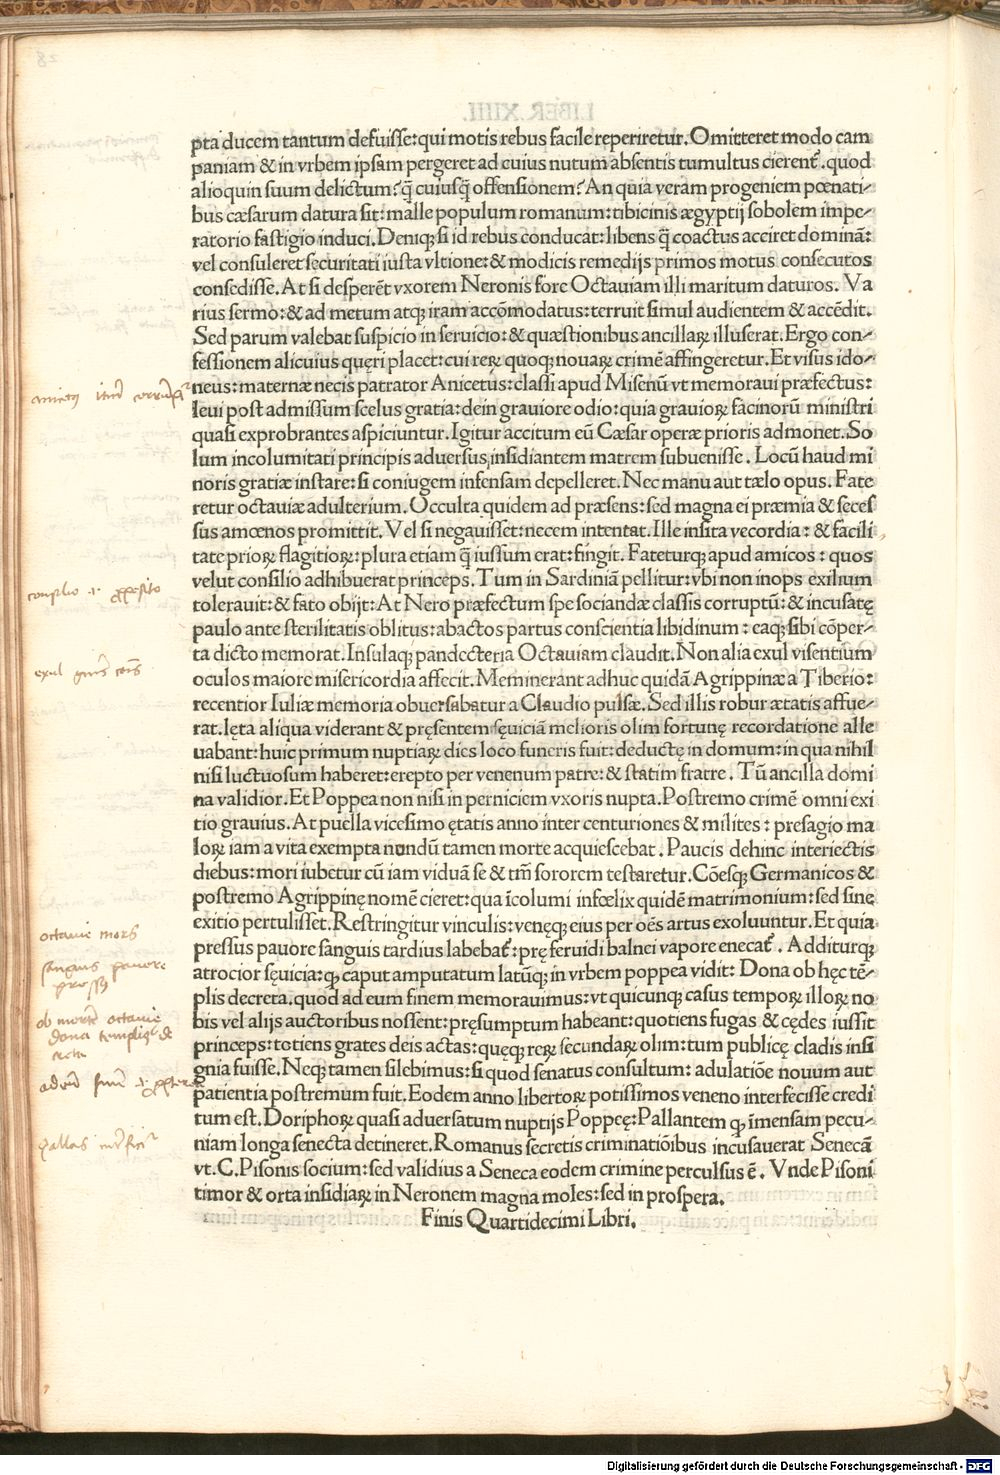 pta ducem tantum defuisse:qui motis rebus facile reperiretur.Omitteret modo cam
paniam & in vrbem ipsam pergeret ad cuius nutum absentis tumultus cierent̃.quod
alioquin suum delictum?q̃ cuiusq̃ offensionem?An quia veram progeniem pœnati-
bus cæsarum datura sit:malle populum romanum:tibicinis ægyptij sobolem impe-
ratorio fastigio induci.Deniqꝫ si id rebus conducat:libens q̃ coactus acciret dominã:
vel consuleret securitati iusta vltione:& modicis remedijs primos motus consecutos
consedisse.At si desperẽt vxorem Neronis fore Octauiam illi maritum daturos. Va
rius sermo:& ad metum atqꝫ iram accõmodatus:terruit simul audientem & accẽdit.
Sed parum valebat suspicio in seruicio:& quæstionibus ancillaꝝ illuserat.Ergo con-
fessionem alicuius quęri placet:cui reꝝ quoqꝫ nouaꝝ crimẽ affingeretur.Et visus ido-
neus:maternæ necis patrator Anicetus:classi apud Misenũ vt memoraui præfectus:
leui post admissum scelus gratia:dein grauiore odio:quia grauioꝝ facinorũ ministri
quasi exprobrantes aspiciuntur.Igitur accitum eũ Cæsar operæ prioris admonet.So
lum incolumitati principis aduersus insidiantem matrem subuenisse. Locũ haud mi
noris gratiæ instare:si coniugem infensam depelleret.Nec manu aut tælo opus. Fate
retur octauiæ adulterium. Occulta quidem ad præsens:sed magna ei præmia & secess
sus amœnos promittit. Vel si negauisset:necem intentat.Ille insita vecordia : & facili
tate prioꝝ flagitioꝝ:plura etiam q̃ iussum erat:fingit. Fateturqꝫ apud amicos : quos
velut consilio adhibuerat princeps.Tum in Sardiniã pellitur:vbi non inops exilium
tolerauit:& fato obijt:At Nero præfectum spe sociandæ classis corruptũ:& incusatę
paulo ante sterilitatis oblitus:abactos partus conscientia libidinum : eaqꝫ sibi cõper-
ta dicto memorat.Insulaqꝫ pandecteria Octauiam claudit.Non alia exul visentium
oculos maiore misericordia affecit.Meminerant adhuc quidã Agrippinæ a Tiberio:
recentior Iuliæ memoria obuersabatur a Claudio pulsæ.Sed illis robur ætatis affue-
rat.lęta aliqua viderant & pręsentem sęuiciã melioris olim fortunę recordatione alle
uabant:huic primum nuptiaꝝ dies loco funeris fuit:deductę in domum:in qua nihil
nisi luctuosum haberet:erepto per venenum patre:& statim fratre . Tũ ancilla domi
na validior.Et Poppea non nisi in perniciem vxoris nupta.Postremo crimẽ omni exi
tio grauius.At puella vicesimo ętatis anno inter centuriones & milites : presagio ma
loꝝ iam a vita exempta nondũ tamen morte acquiescebat. Paucis dehinc interiectis
diebus:mori iubetur cũ iam viduã se & tm̃ sororem testaretur.Cõesqꝫ Germanicos &
postremo Agrippinę nomẽ cieret:qua ĩcolumi infœlix quidẽ matrimonium:sed sine
exitio pertulisset.Restringitur vinculis:venęqꝫ eius per oẽs artus exoluuntur.Et quia
pressus pauore sanguis tardius labebat̃:pręferuidi balnei vapore enecat̃. Additurqꝫ
atrocior sęuicia:qꝫ caput amputatum latũqꝫ in vrbem poppea vidit: Dona ob hęc tẽ-
plis decreta.quod ad eum finem memorauimus:vt quicunqꝫ casus tempoꝝ illoꝝ no
bis vel alijs auctoribus nossent:pręsumptum habeant:quotiens fugas & cędes iussit
princeps:totiens grates deis actas:quęqꝫ reꝝ secundaꝝ olim:tum publicę cladis insi
gnia fuisse.Neqꝫ tamen silebimus:si quod senatus consultum: adulatiõe nouum aut
patientia postremum fuit.Eodem anno libertoꝝ potissimos veneno interfecisse credi
tum est.Doriphoꝝ quasi aduersatum nuptijs Poppeę:Pallantem qꝫ ĩmensam pecu-
niam longa senecta detineret.Romanus secretis criminatiõibus incusauerat Senecã
vt.C.Pisonis socium:sed validius a Seneca eodem crimine perculsus ẽ. Vnde Pisoni
timor & orta insidiaꝝ in Neronem magna moles:sed in prospera.
Finis Quartidecimi Libri.
octauie mors
sanguis pauore
pressus
ob mortẽ octauie
dona templis de
creta
Digitalisierung gefördert durch die Deutsche Forschungsgemeinschaft - DFG